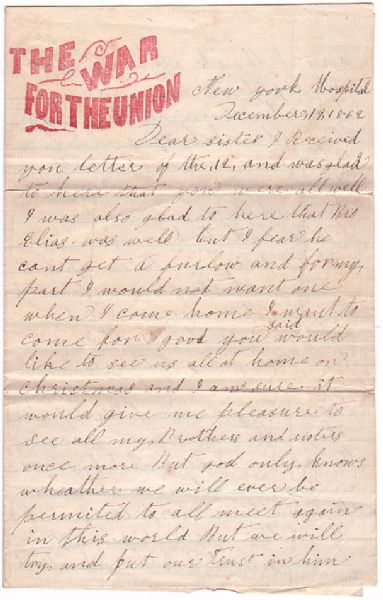 THE WAR
FOR THE UNION
New york Hospital
December 19, 1862
Dear sister I Received
you letter of the, 12, and was glad
to here that you were all well
I was also glad to here that Bro
Elias was well but I fear he
cant get a furlow and for my
part I would not want one
when I come home I want to
come for good you said would
like to see us all at home on
Christmas and I am sure it
would give me pleasure to
see all my Brothers and sisters
once more But god only knows
wheather we will ever be
permitted to all meet again
in this world But we will
try and put our trust in him